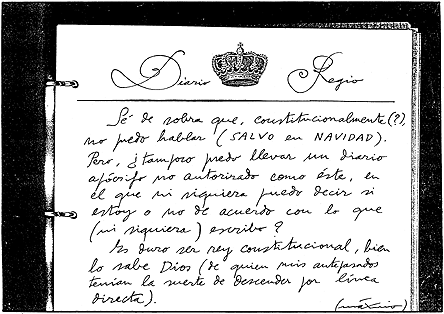 Diario Regio
Sé de sobra que, constitucionalmente (?),
no puedo hablar (SALVO en NAVIDAD).
Pero, ¿tampoco puedo llevar un diario
apócrifo no autorizado como éste, en
el que ni siquiera puedo decir si
estoy o no de acuerdo con lo que
(ni siquiera) escribo?
Es duro ser rey constitucional, bien
lo sabe Dios (de quien mis antepasados
tenían la suerte de descender por línea
directa).
(máximo)